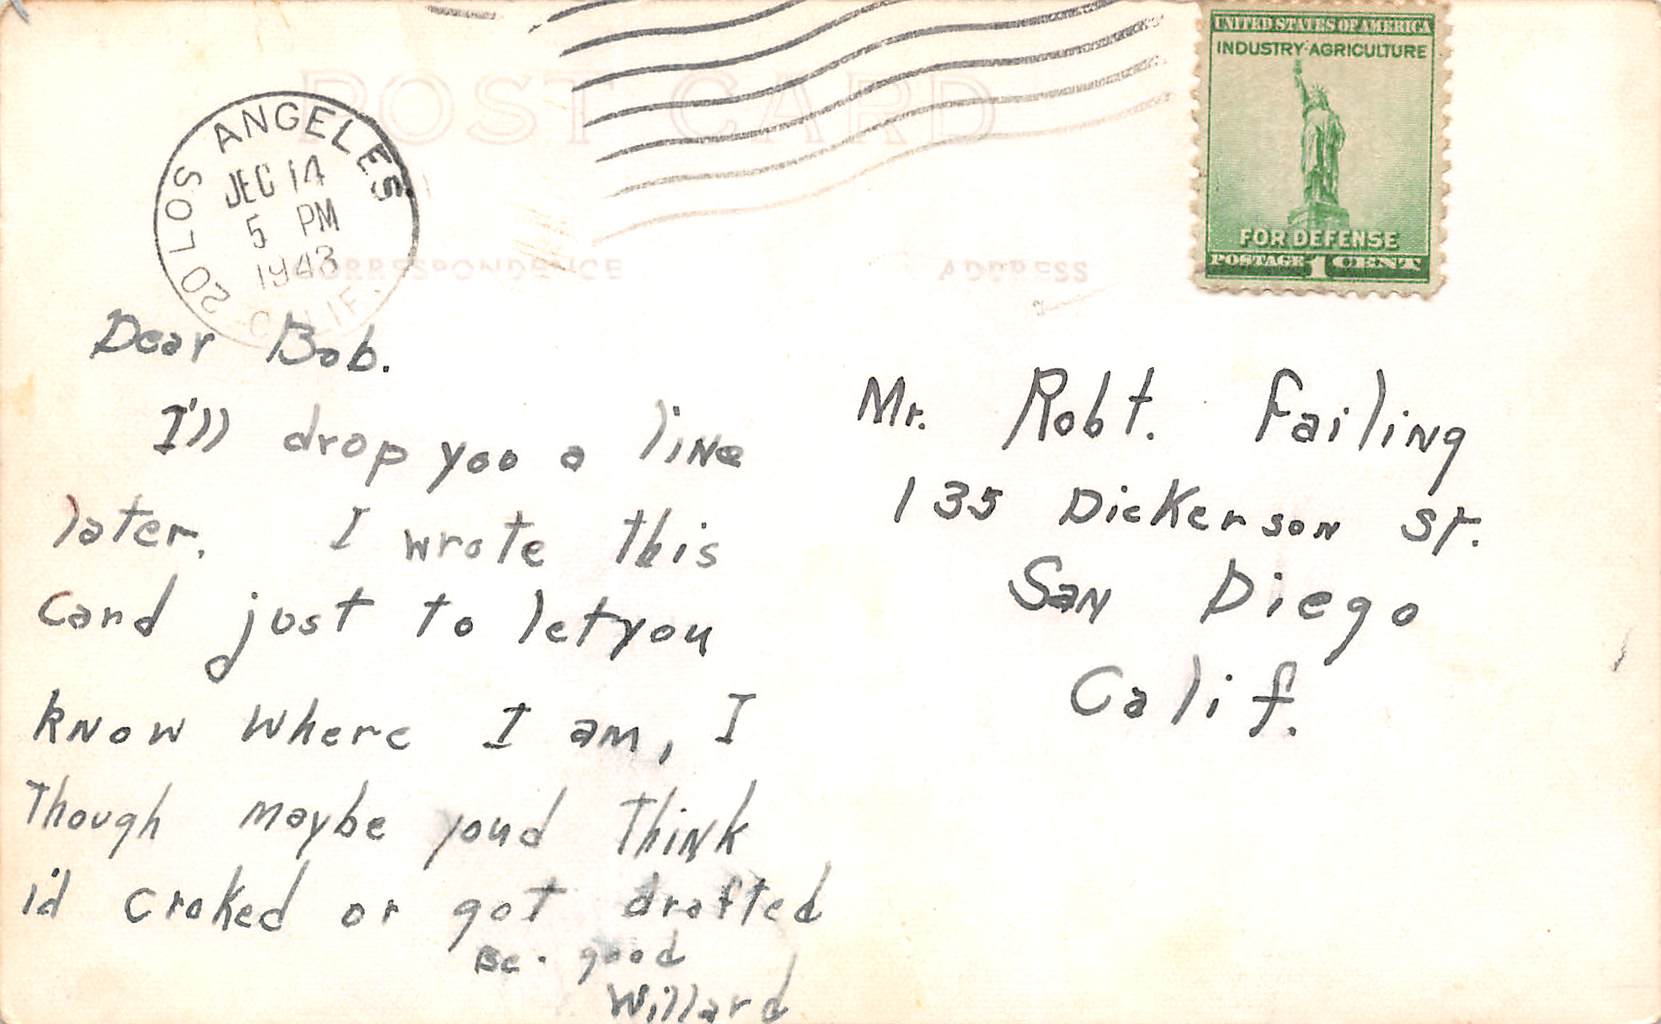 POST CARD
LOS ANGELES 20
DEC 14
5 PM
1943
CALIF.
UNITED STATES OF AMERICA
INDUSTRY·AGRICULTURE
FOR DEFENSE
POSTAGE 1 CENT
CORRESPONDENCE
ADDRESS
Dear Bob.
I'll drop you a line
later. I wrote this
Card just to let you
know where I am, I
Though maybe youd Think
i'd croked or got drafted
Be. good
Willard
Mr. Robt. Failing
135 Dickerson St.
San Diego
Calif.